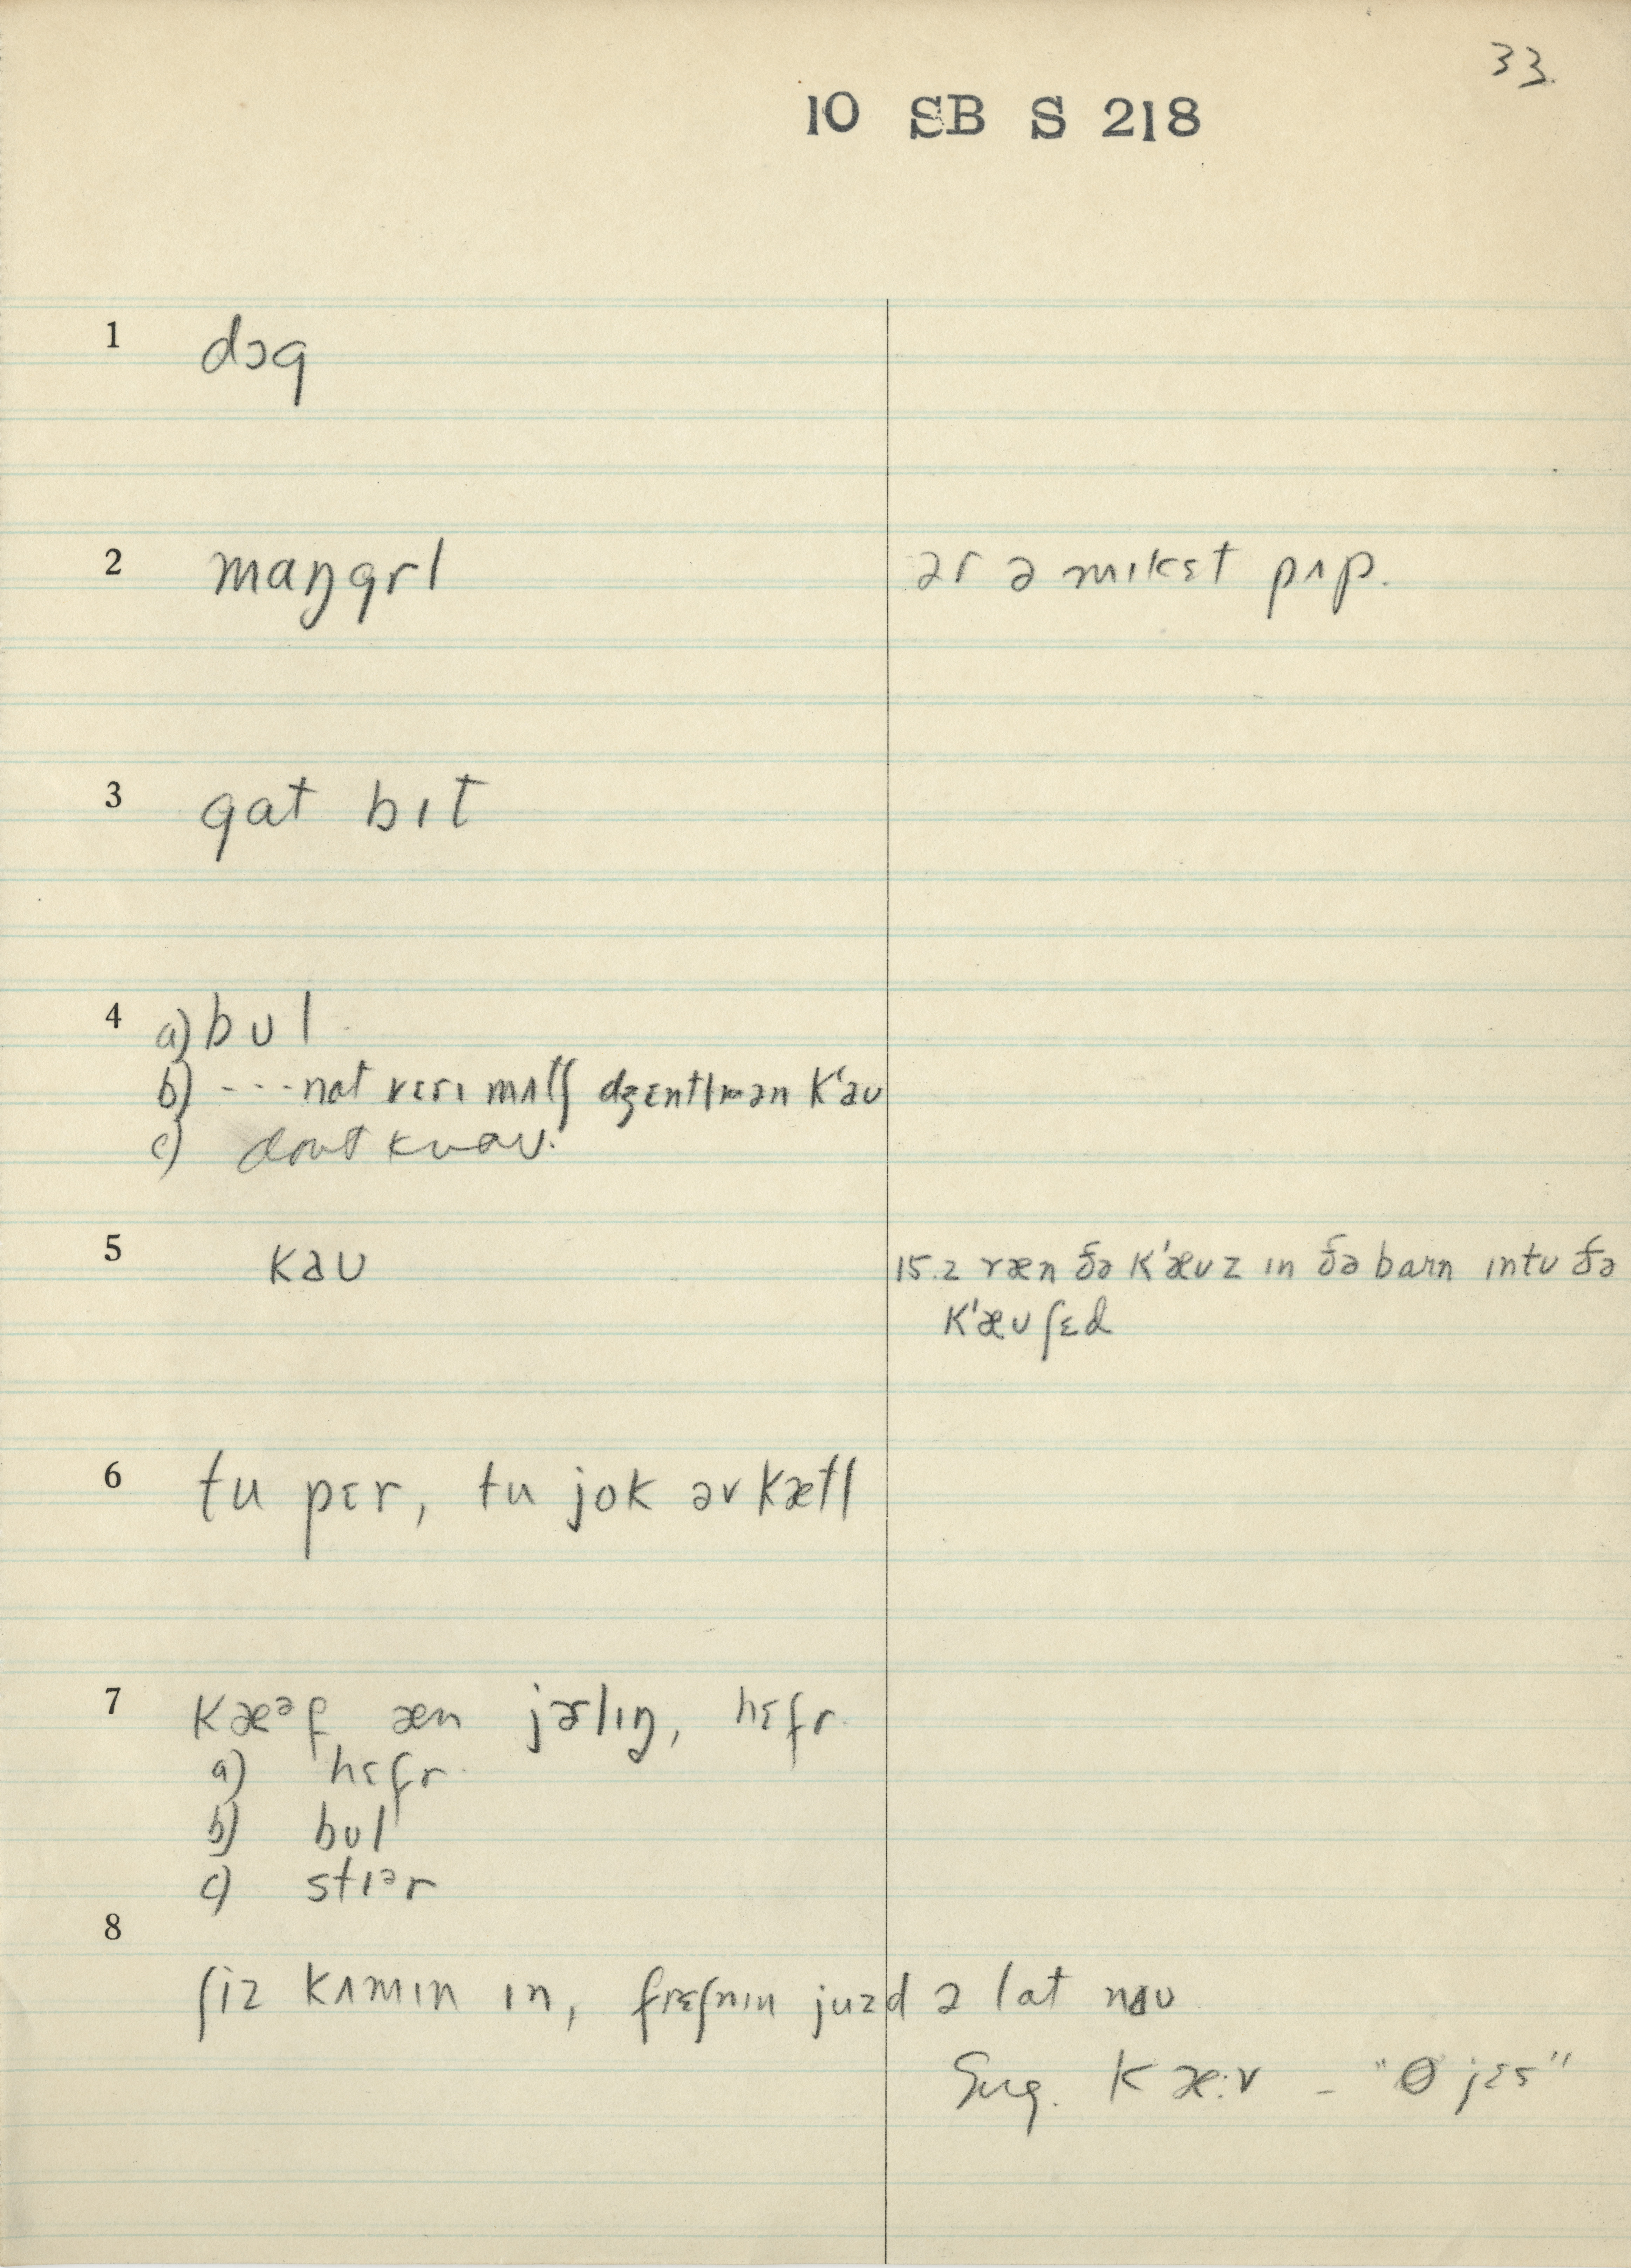 33.
10 SB S 218
1 dɔg
2 maŋgrl ər ə mɪksɛt pʌp.
3 gat bɪt
4 a) bʊl
b) ---nat vɛrɪ mʌtʃ dʒɛntlmən k'aʊ
c) dont know.
5 kaʊ 15.2 ræn ðə k'æʊz ɪn ðə barn ɪntʊ ðə
k'æʊ ʃɛd
6 tu pɛr, tu jok əv kætl
7 kæᵊf æn jərlɪŋ, hɛfr.
a) hɛfr.
b) bʊl
c) stɪᵊr
8
ʃiz kʌmɪn ɪn, frɛʃnɪn juzd ə lat naʊ
Sug. kæ:v - "O jɛs"